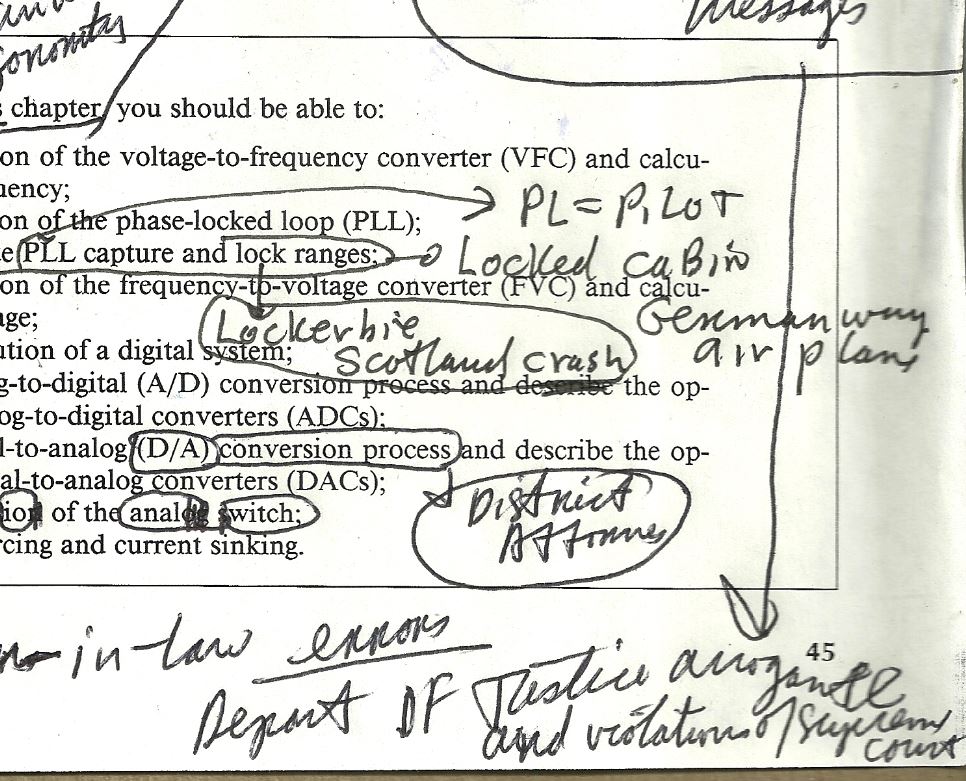 Messages
s chapter, you should be able to:
on of the voltage-to-frequency converter (VFC) and calcu-
uency;
on of the phase-locked loop (PLL);
PL = PiLOT
e PLL capture and lock ranges;
Locked caBin
on of the frequency-to-voltage converter (FVC) and calcu-
age;
Lockerbie
German wing
ution of a digital system;
Scotland crash
air plane
g-to-digital (A/D) conversion process and describe the op-
og-to-digital converters (ADCs);
l-to-analog (D/A) conversion process and describe the op-
al-to-analog converters (DACs);
District
ion of the analog switch;
Attorney
rcing and current sinking.
in-law errors
45
Depart OF Justice arrogance
and violations of Supreme
court